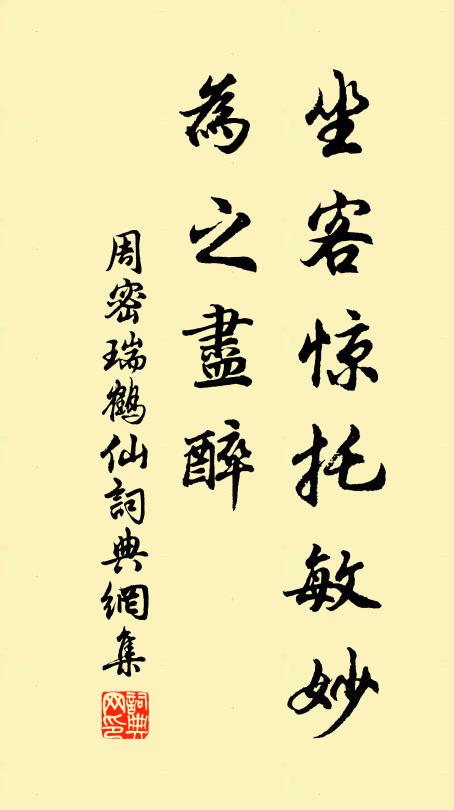 坐客惊托敏妙
為之盡醉
周密瑞鶴仙詞典網集
詞典网印